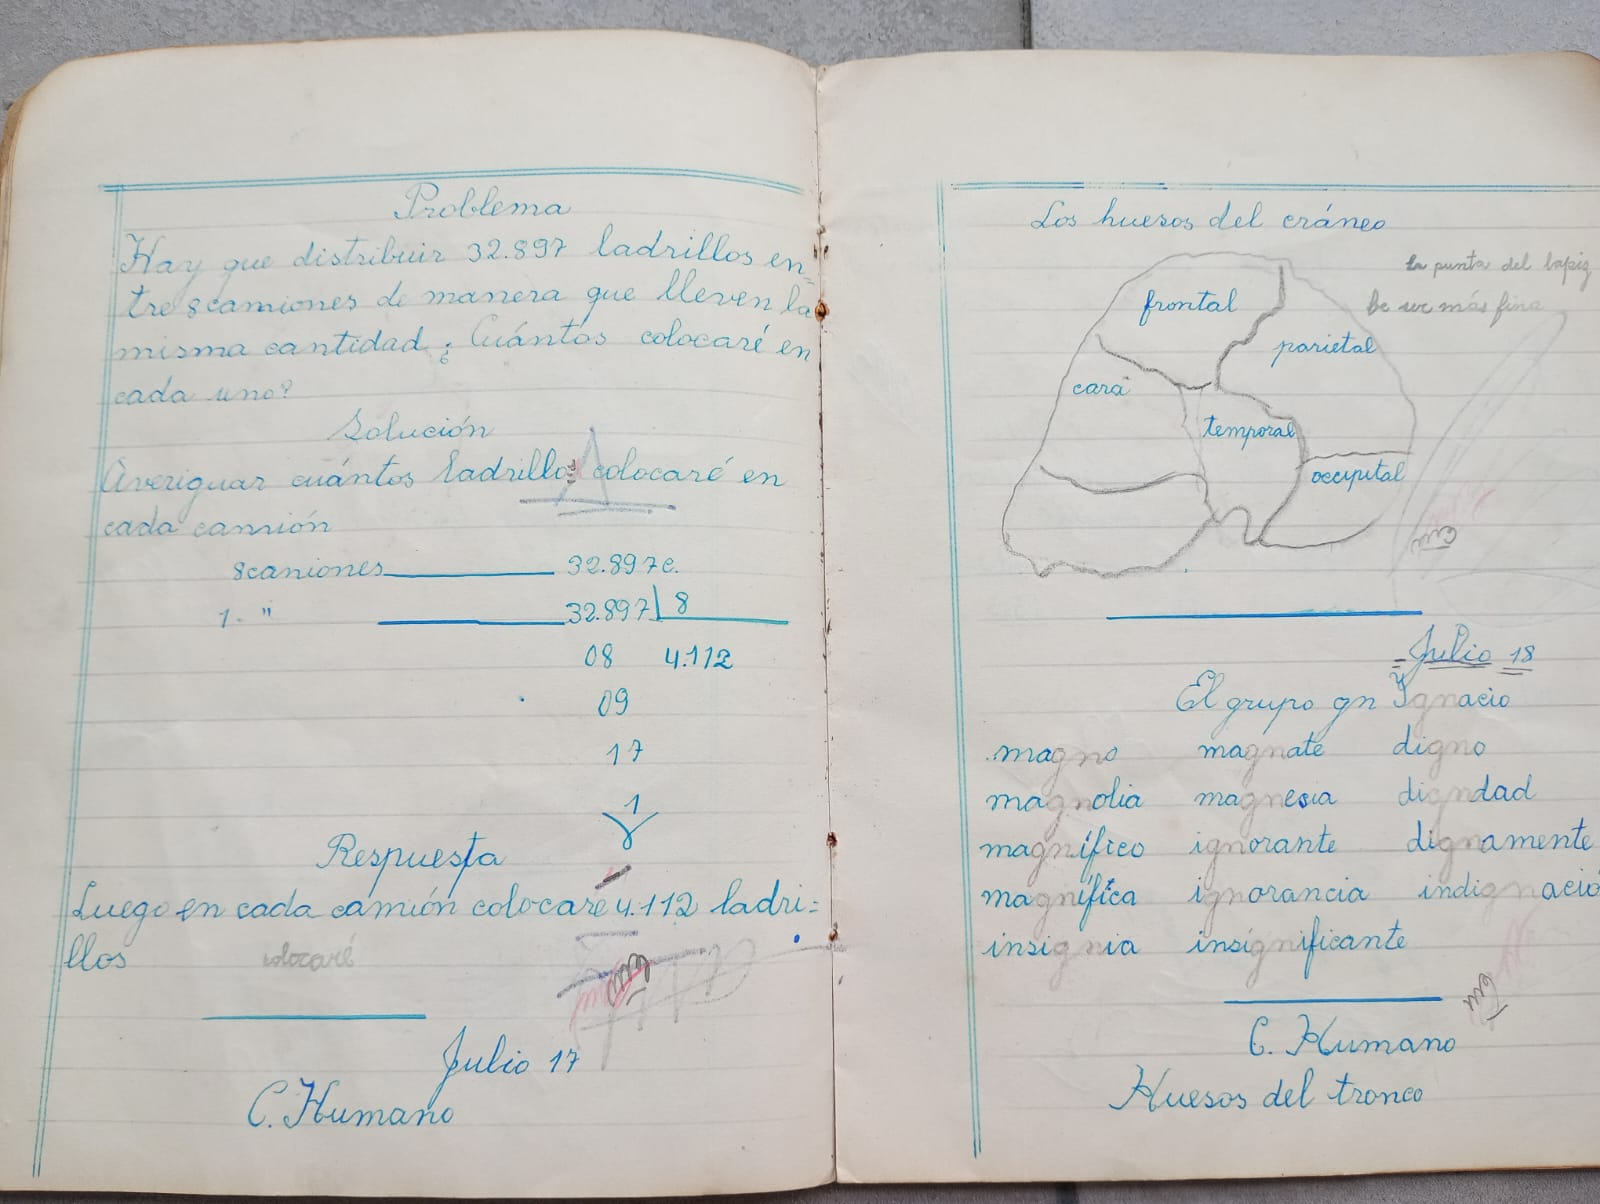 Problema
Hay que distribuir 32.897 ladrillos en=
tre 8 camiones de manera que lleven la
misma cantidad ¿Cuántos colocaré en
cada uno?
Solución
Averiguar cuántos ladrillos colocaré en
cada camión
8 camiones 32.897 c.
1. " 32.897 8
08 4.112
09
17
1
Respuesta
Luego en cada camión colocaré 4.112 ladri=
llos colocaré
Julio 17
C. Humano
Los huesos del cráneo
la punta del lapiz
frontal
parietal
cara
temporal
occipital
Julio 18
El grupo gn Ignacio
magno magnate digno
magnolia magnesia digndad
magnífico ignorante dignamente
magnífica ignorancia indignació
insignia insignificante
C. Humano
Huesos del tronco